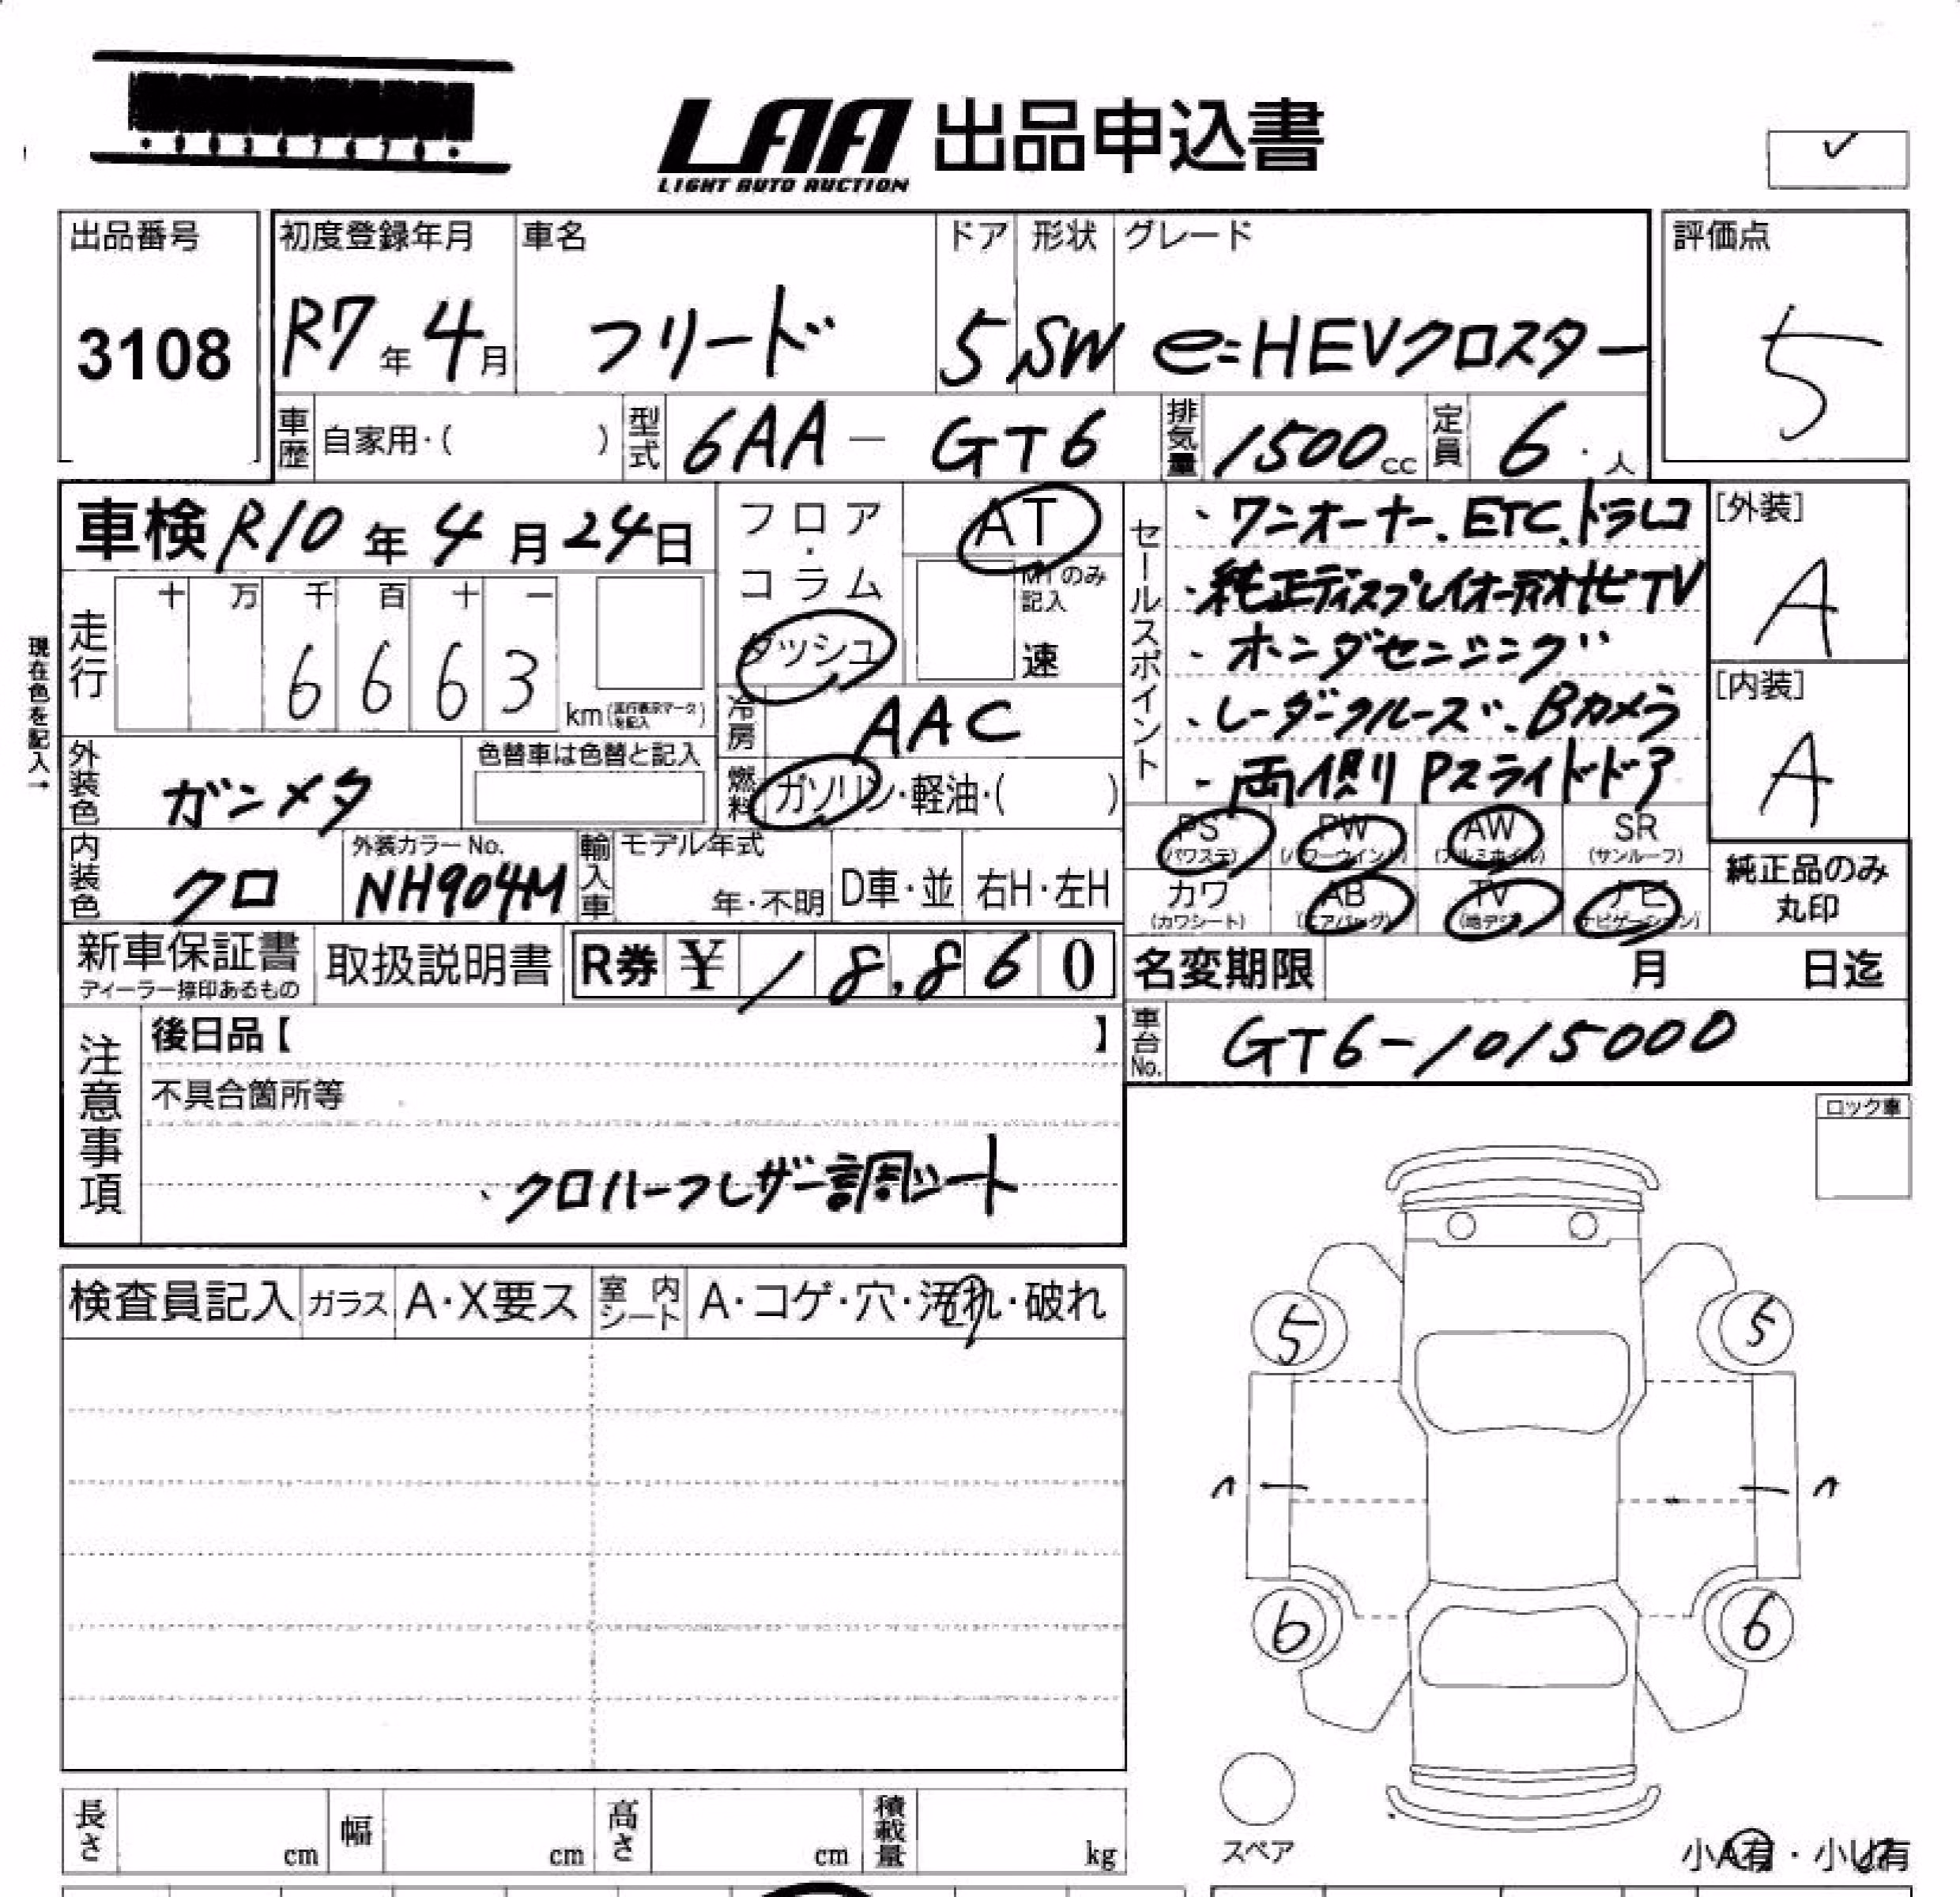 LAA 出品申込書
LIGHT AUTO AUCTION
出品番号
3108
初度登録年月
R7年4月
車名
フリード
ドア
5
形状
SW
グレード
e:HEVクロスター
評価点
5
車歴 自家用・( )
型式 6AA－GT6
排気量 1500cc
定員 6・人
車検 R10年4月24日
フロア・コラム
ダッシュ
AT
MTのみ記入
速
セールスポイント
・ワンオーナー、ETC、ドラレコ
・純正ディスプレイオーディオナビTV
・ホンダセンシング
・レーダークルーズ、Bカメラ
・両側Pスライドドア
[外装]
A
[内装]
A
現在色を記入→
走行
十 万 千 百 十 一
6 6 6 3
km(走行表示マークを記入)
冷房 AAC
燃料 ガソリン・軽油・( )
外装色 ガンメタ
色替車は色替と記入
内装色 クロ
外装カラーNo.
NH904M
輸入車
モデル年式
年・不明
D車・並
右H・左H
PS AW SR
PW
(パワステ) (パワーウインド) (アルミホイル) (サンルーフ)
カワ AB TV ナビ
(カワシート) (エアバッグ) (地デジ) (ナビゲーション)
純正品のみ
丸印
新車保証書
ディーラー捺印あるもの
取扱説明書
R券 ¥ 18,860
名変期限 月 日迄
車台No. GT6-1015000
注意事項
後日品【 】
不具合箇所等
、クロハーフレザー調シート
ロック車
検査員記入 ガラス A・X要ス 室内シート A・コゲ・穴・汚れ・破れ
5 5
6 6
スペア
小A有・小U有
長さ cm 幅 cm 高さ cm 積載量 kg